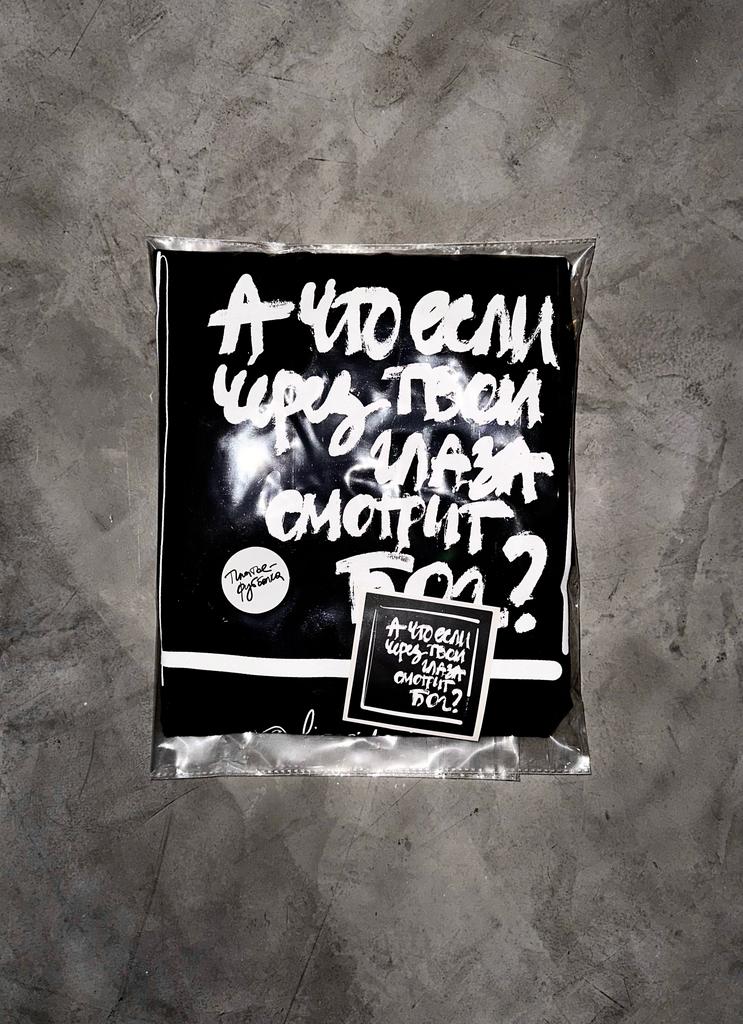 А что если
через твои
глаза
смотрит
Бог?
Платье-
футболка
А что если
через твои
глаза
смотрит
Бог?